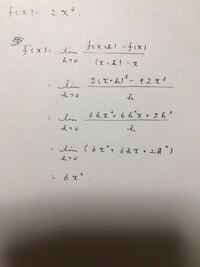 f(x) = 2x³.
f'(x) = lim h→0 f(x+h) - f(x) / (x+h) - x
= lim h→0 2(x+h)³ - 2x³ / h
= lim h→0 6hx² + 6h²x + 2h³ / h
= lim h→0 (6x² + 6hx + 2h²)
= 6x².